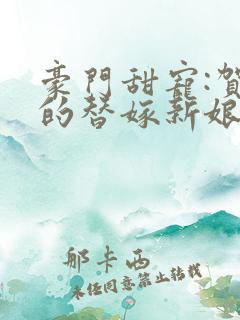 豪門甜寵:賀
的替嫁新娘
那卡西
未经同意禁止转载